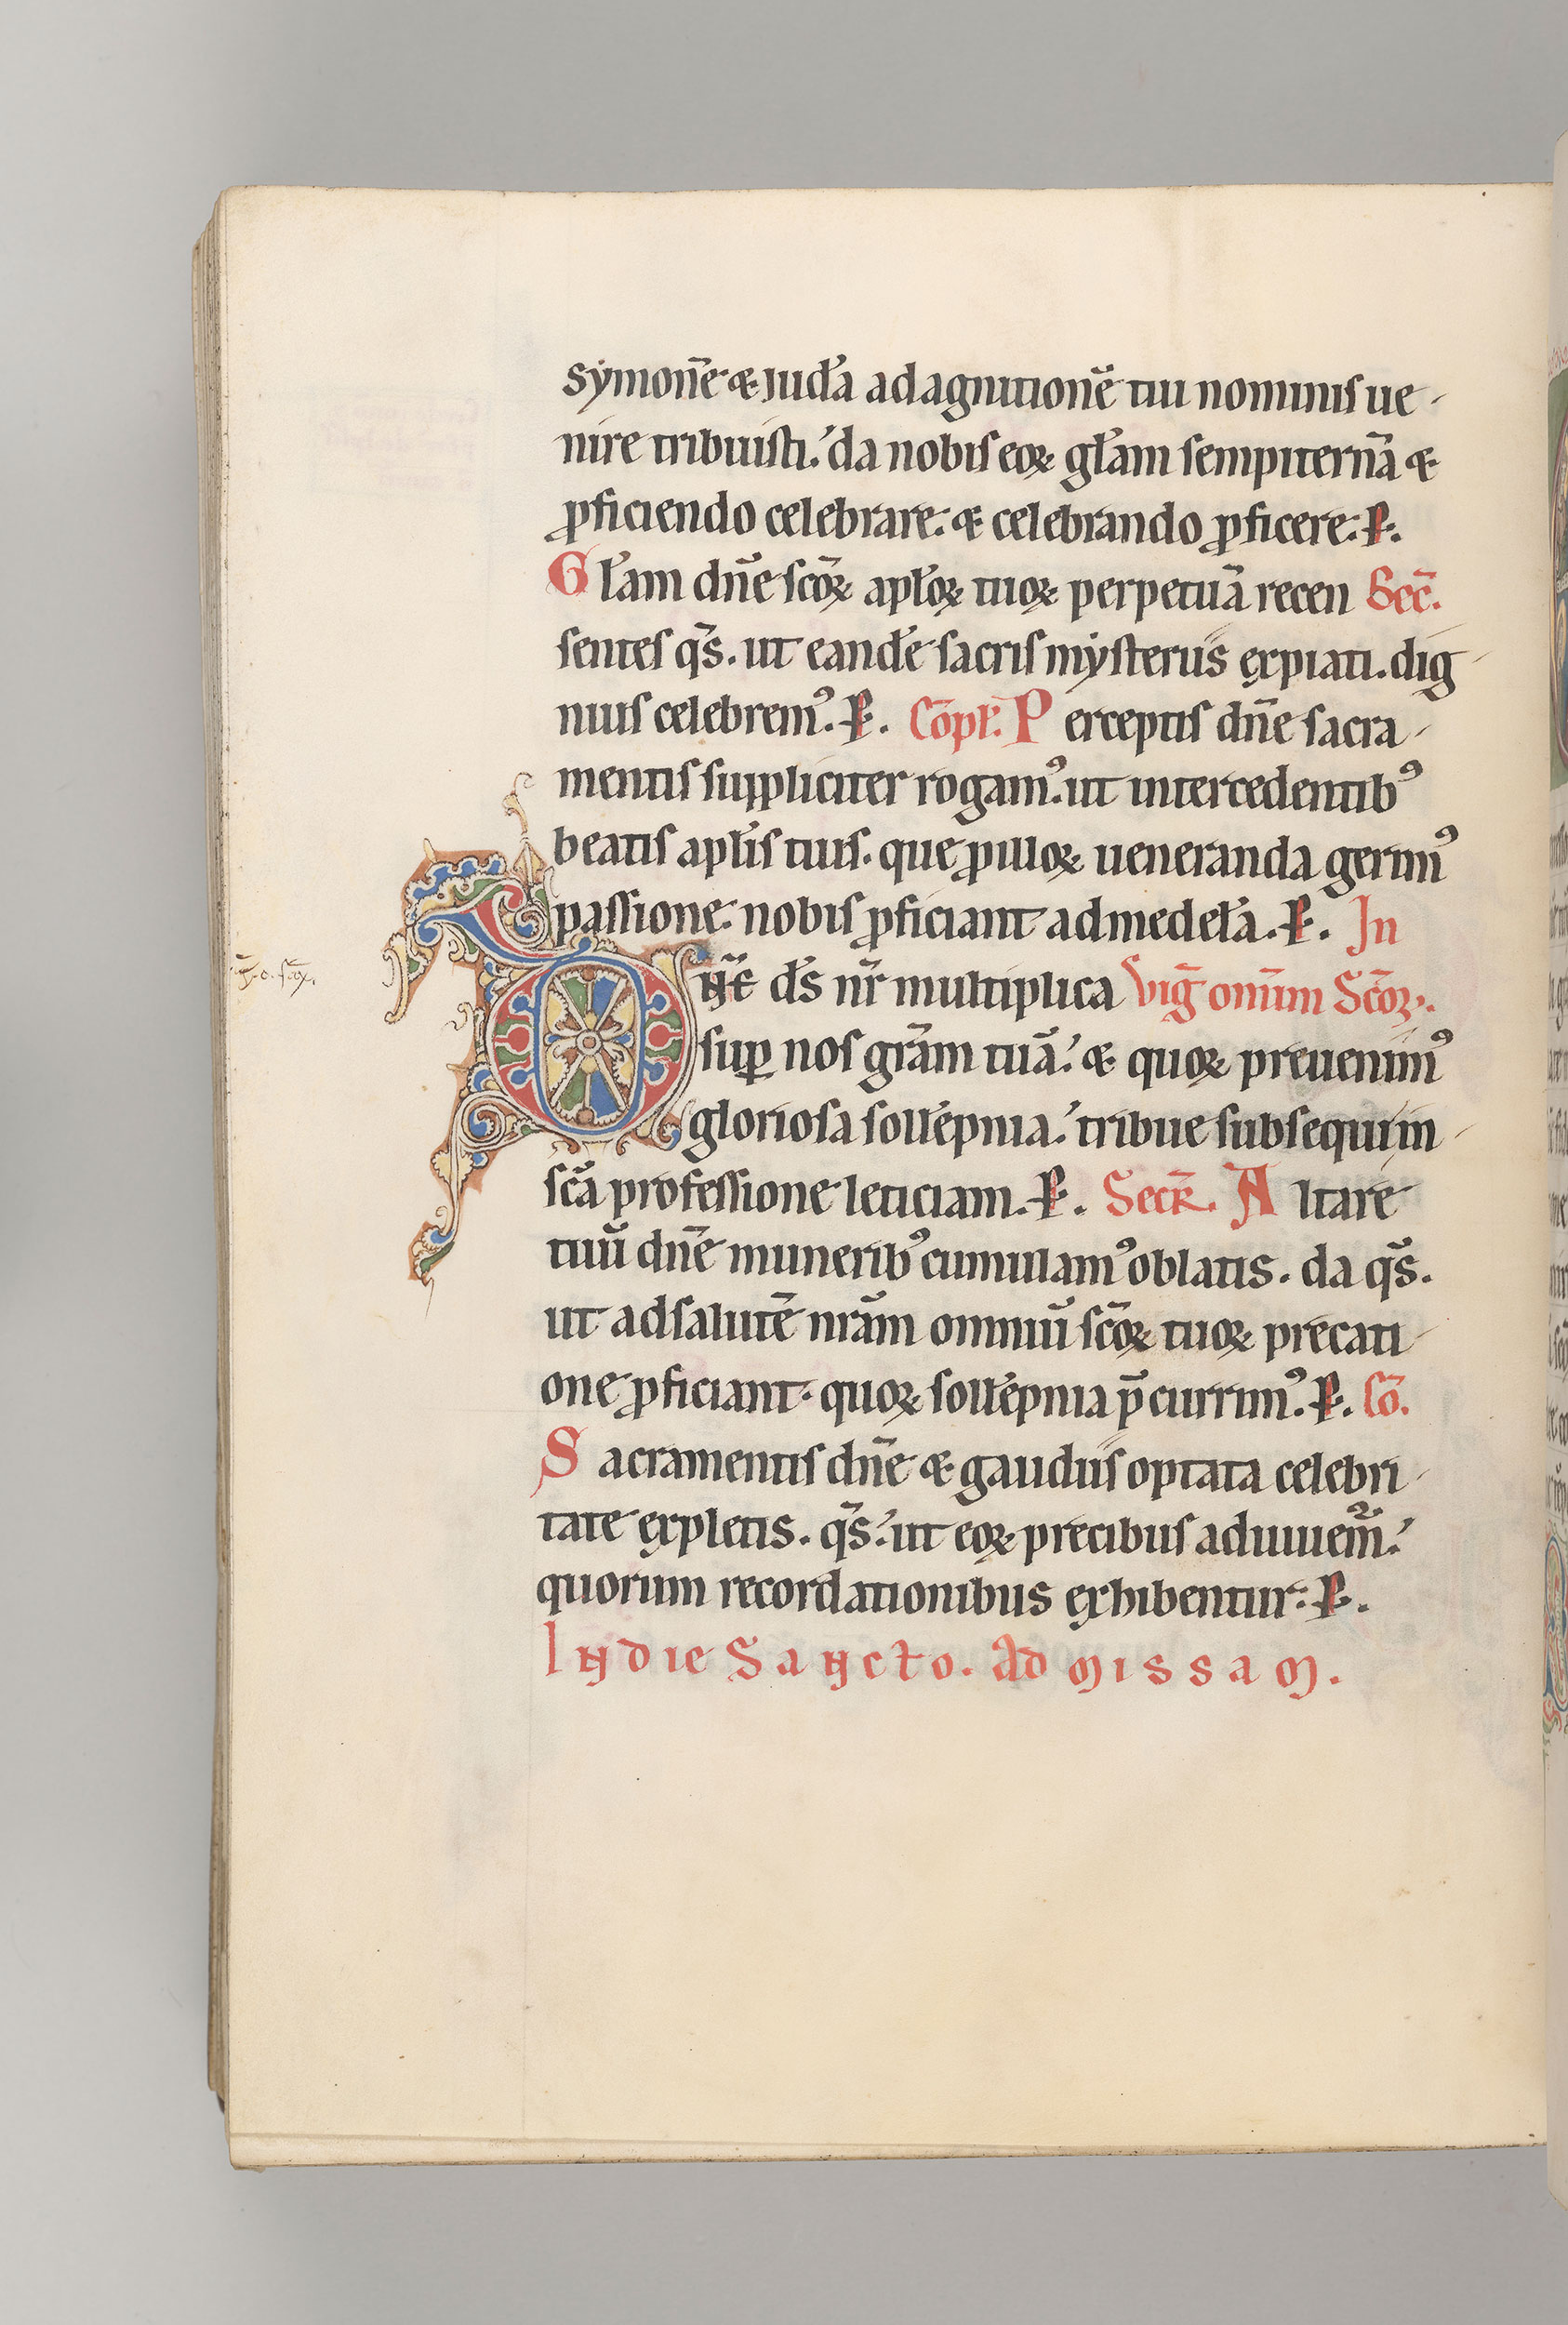 symonē & iudā ad agnitionē tui nominis ue-
nire tribuisti. da nobis eoꝝ gl̄am sempiternā &
ꝓficiendo celebrare. & celebrando ꝓficere. P̶.
Gl̄am dn̄e sc̄oꝝ apl̄oꝝ tuoꝝ perpetuā recen Sec̄.
sentes qs̄. ut eandē sacris mẏsteriis expiati. dig-
nius celebremꝰ. P̶. Cōpl̄. Perceptis dn̄e sacra-
mentis suppliciter rogamꝰ. ut intercedentibꝰ
beatis apl̄is tuis. que ꝓ illoꝝ ueneranda gerimꝰ
passione. nobis ꝓficiant ad medelā. P̶. In
Dn̄e ds̄ nr̄ multiplica viḡ omīm Sc̄oꝝ.
suꝑ nos gr̄am tuā. & quoꝝ preuenimꝰ
gloriosa sollēpnia. tribue subsequi in
sc̄a professione leticiam. P̶. Secr̄. Altare
tuū dn̄e muneribꝰ cumulamꝰ oblatis. da qs̄.
ut ad salutē nr̄am omniū sc̄oꝝ tuoꝝ precati-
one ꝓficiant. quoꝝ sollēpnia p̄currimꝰ. P̶. Cō.
Sacramentis dn̄e & gaudiis optata celebri-
tate expletis. qs̄. ut eoꝝ precibus adiuuem̄.
quorum recordationibus exhibentur. P̶.
In die Sancto. Ad missam.